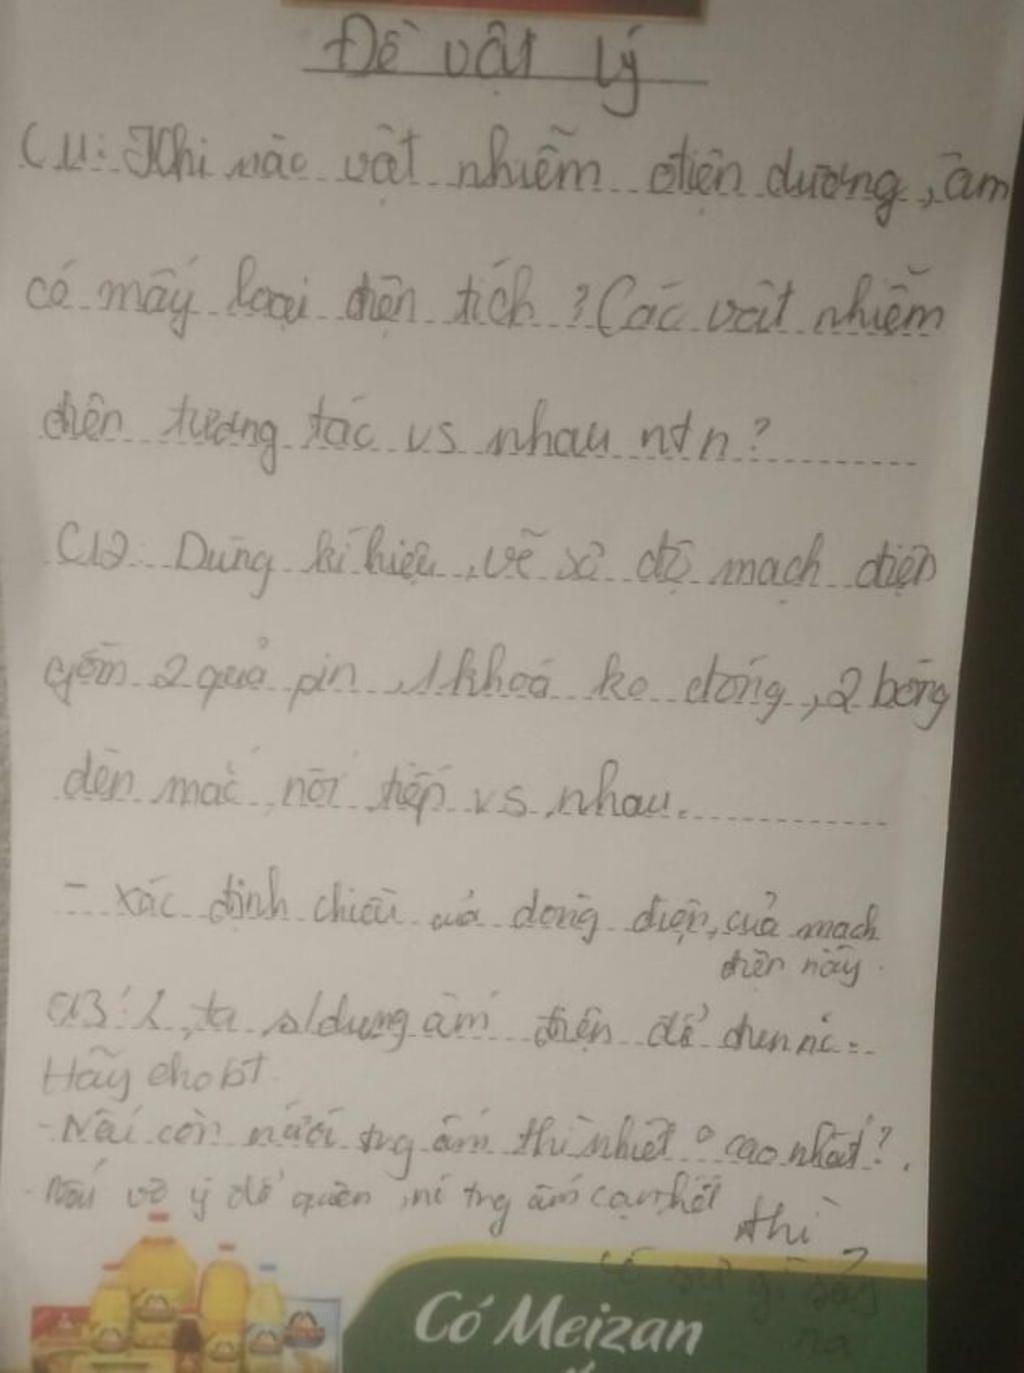 Đề vật lý
CU1: Khi nào vật nhiễm điện dương, âm
có mấy loại điện tích ? Các vật nhiễm
điện tương tác vs nhau ntn?
CU2: Dùng kí hiệu, vẽ sơ đồ mạch điện
gồm 2 quả pin, 1 khoá ko đóng, 2 bóng
đèn mắc nối tiếp vs nhau.
- xác định chiều của dòng điện, của mạch
điện này.
ta s/dụng ấm điện để đun nc.
Hãy cho bt
- Nếu còn nước trg ấm thì nhiệt ° cao nhất?
- Nếu vô ý để quên, nc trg ấm cạn hết thì
có sự gì xảy
ra
Có Meizan